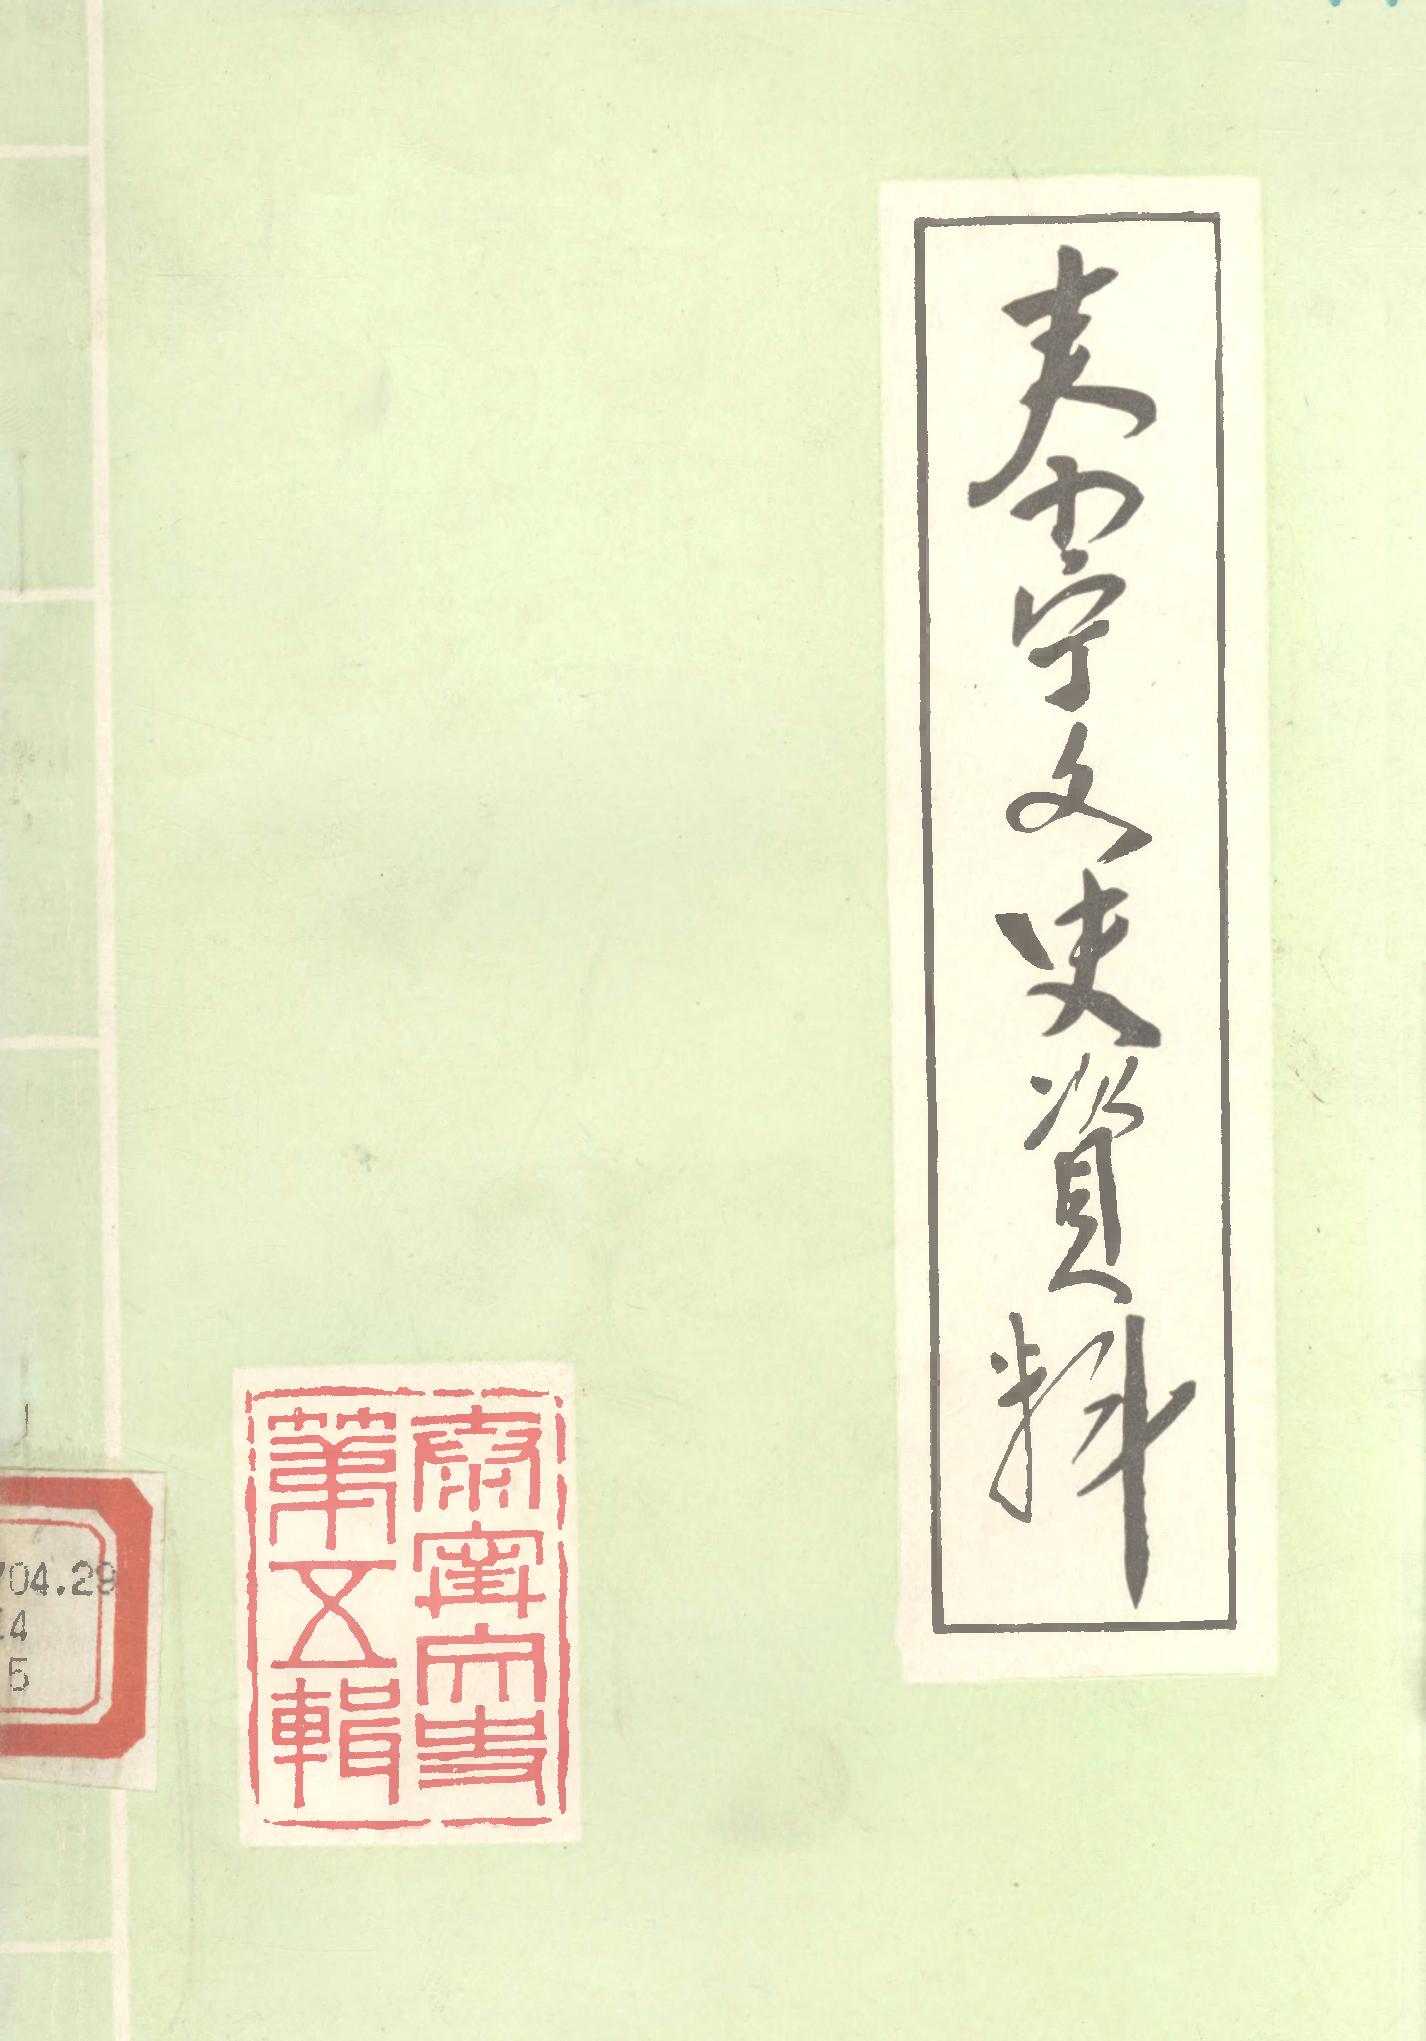 泰宁文史資料
泰寧文史
第五輯
704.29
14
5